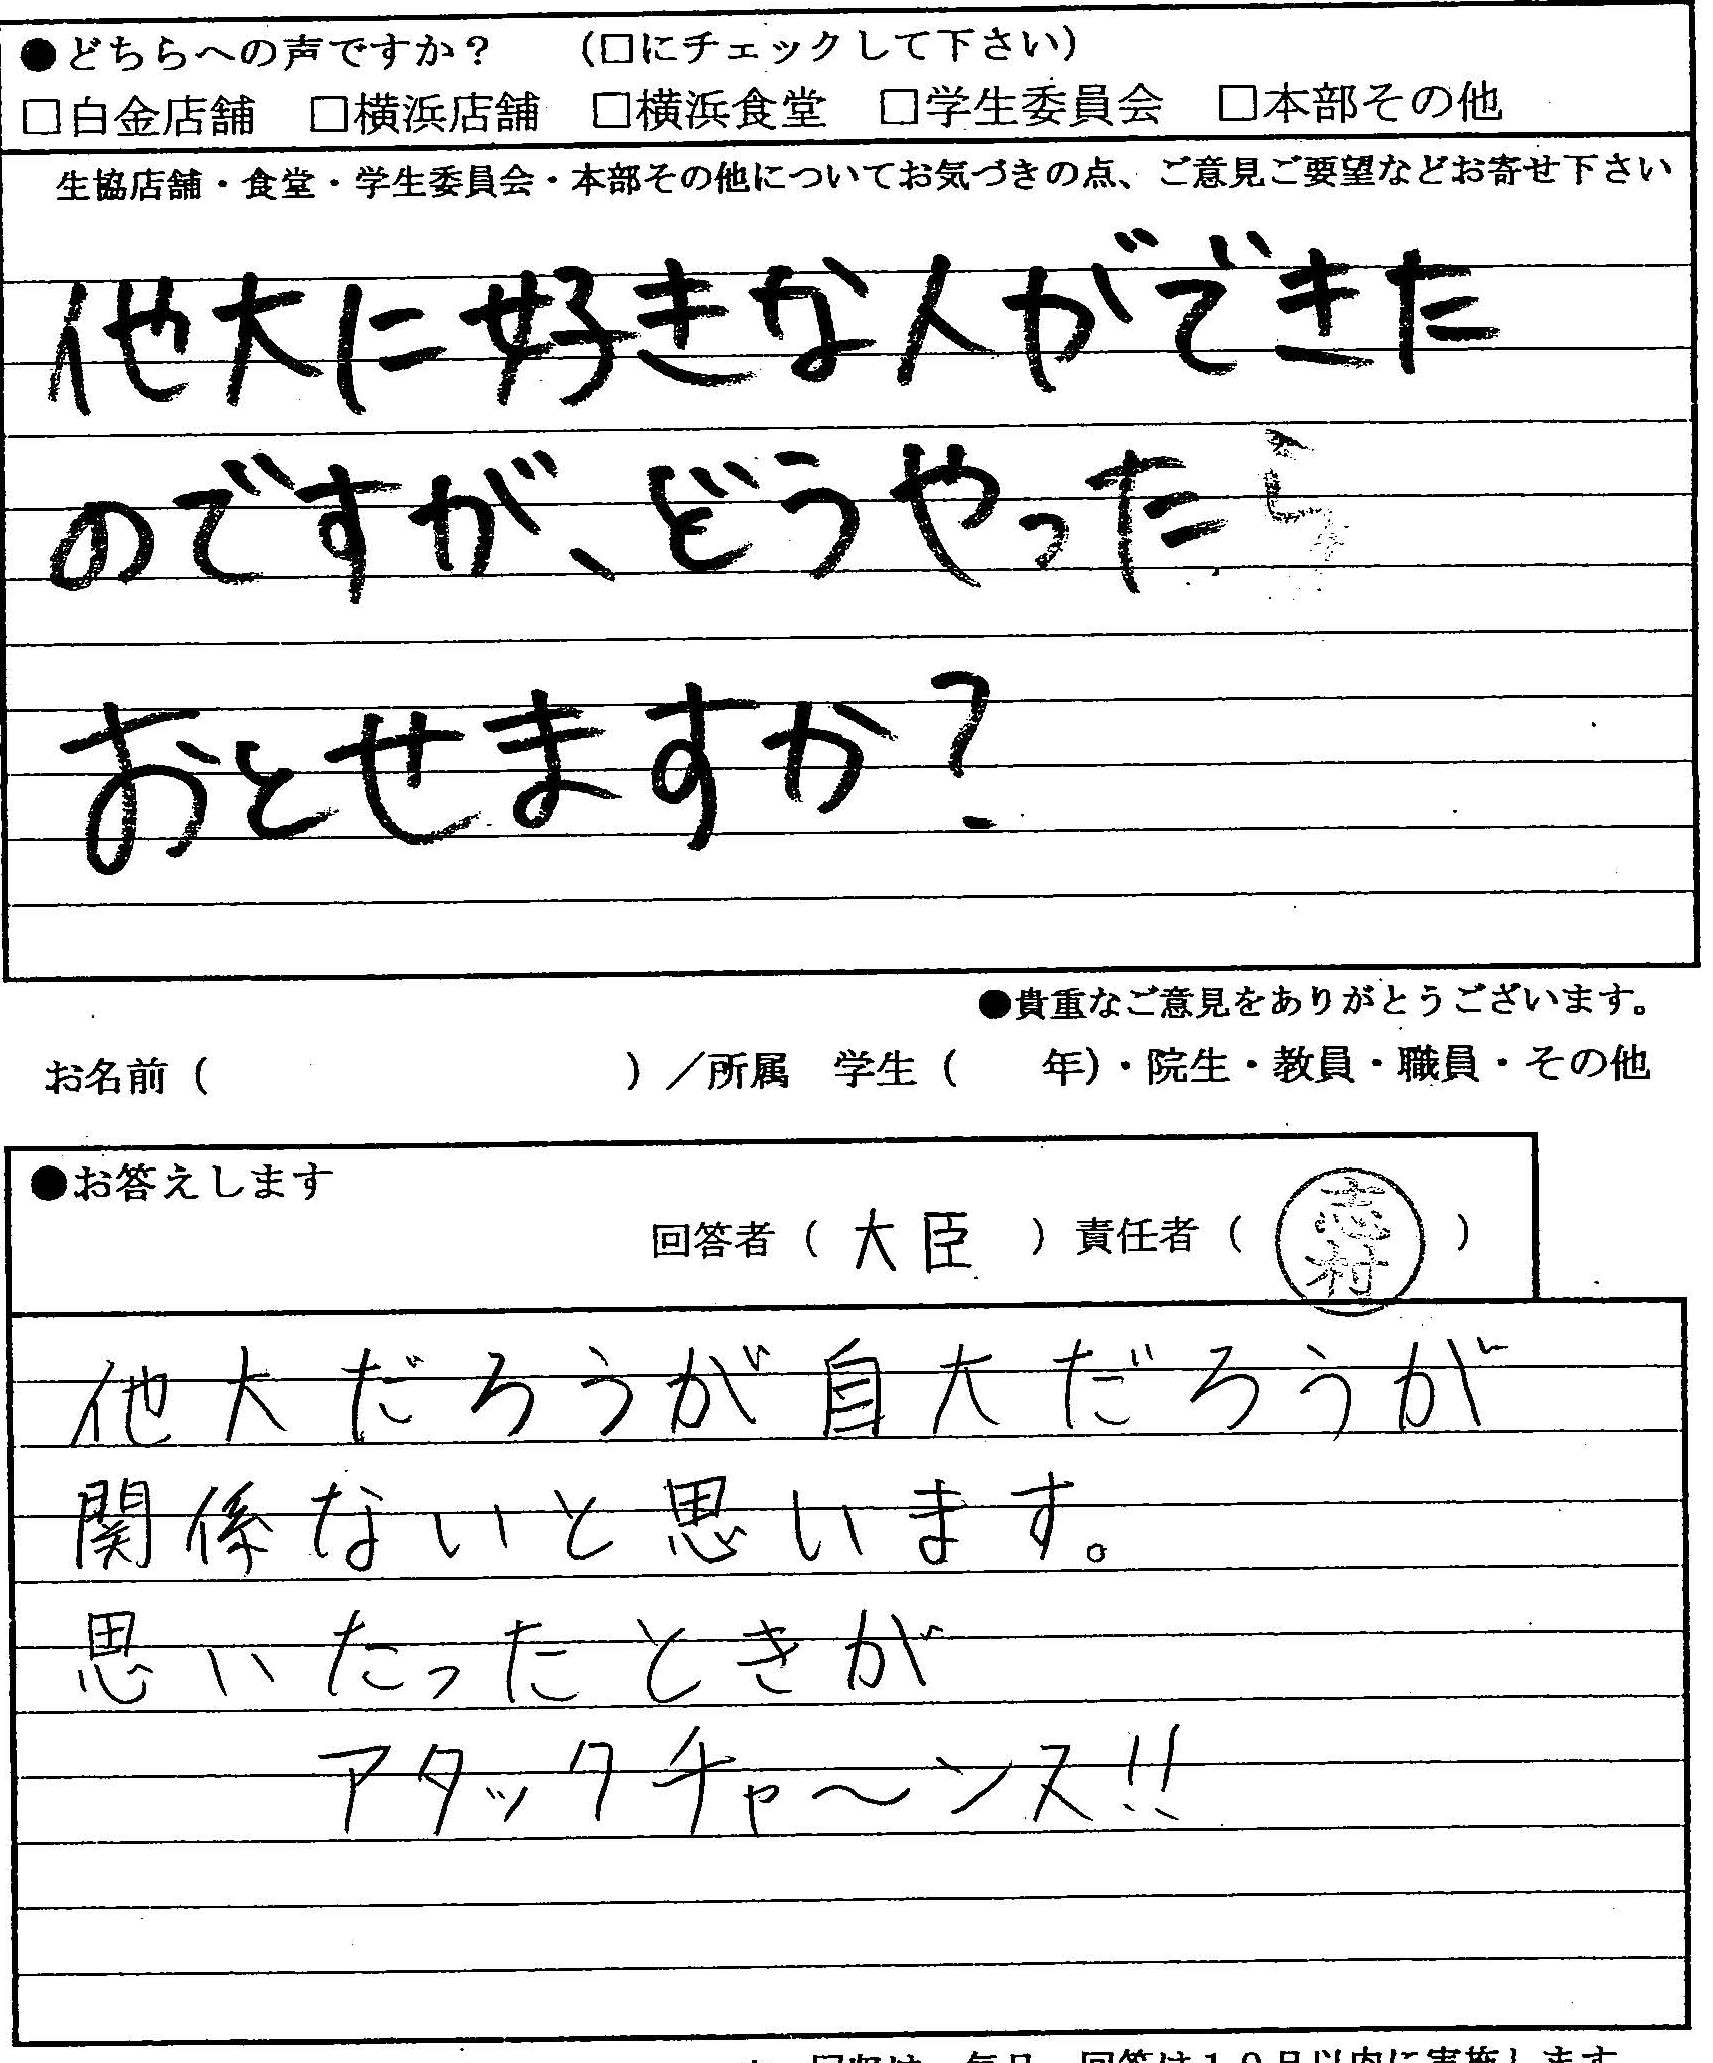 ●どちらへの声ですか？　（□にチェックして下さい）
□白金店舗　□横浜店舗　□横浜食堂　□学生委員会　□本部その他
生協店舗・食堂・学生委員会・本部その他についてお気づきの点、ご意見ご要望などお寄せ下さい
他大に好きな人ができた
のですが、どうやったら
おとせますか？
●貴重なご意見をありがとうございます。
お名前（　　　　　）／所属　学生（　　年）・院生・教員・職員・その他
●お答えします
回答者（大臣）責任者（志村）
他大だろうが自大だろうが
関係ないと思います。
思いたったときが
アタックチャ〜ンス!!
回答は１０日以内に実施します